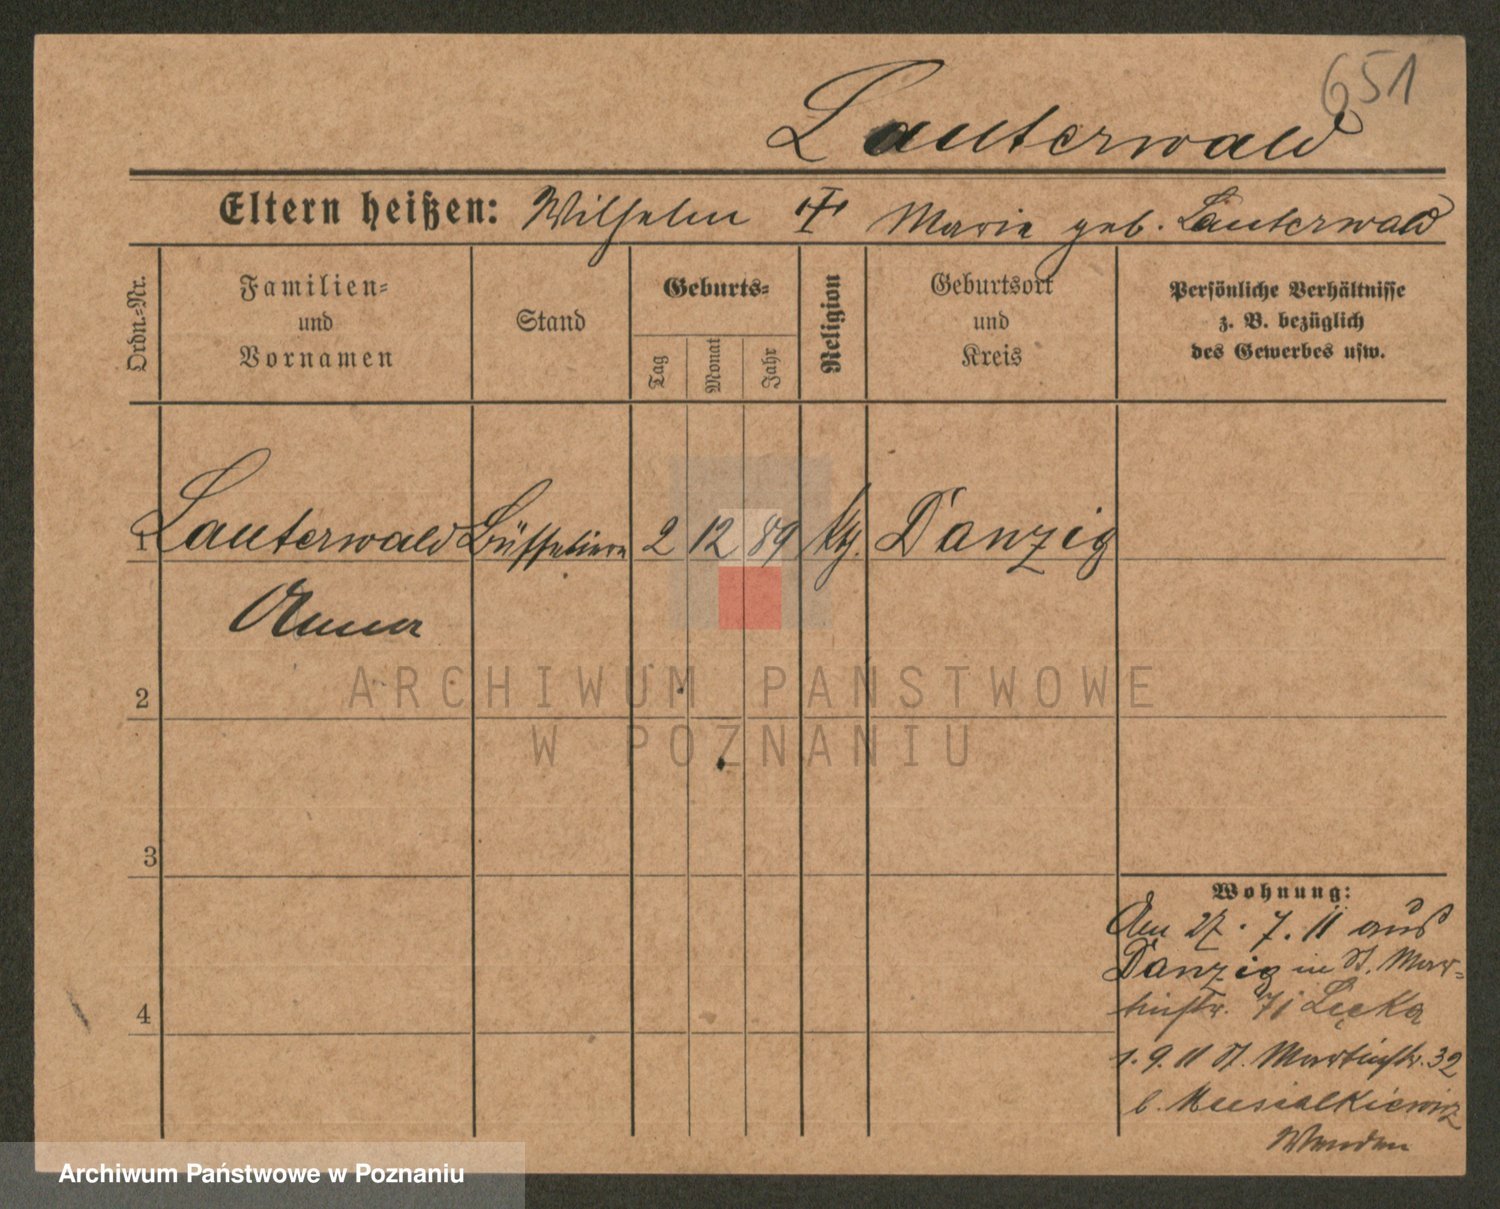 651
Lauterwald
Eltern heißen: Wilhelm Marie geb. Lauterwald
Ordn.-Nr.
Familien-
und
Vornamen
Stand
Geburts-
Tag
Monat
Jahr
Religion
Geburtsort
und
Kreis
Persönliche Verhältnisse
z. B. bezüglich
des Gewerbes usw.
1 Lauterwald Büffetiere 2 12 89 kth. Danzig
Anna
2
3
4
Wohnung:
Am 27.7.11 aus
Danzig in St. Mar-
tinstr. 71 Lęcka
1.9.11 St. Martinstr. 32
b. Musialkiewicz
Wenden
ARCHIWUM PAŃSTWOWE
W POZNANIU
Archiwum Państwowe w Poznaniu